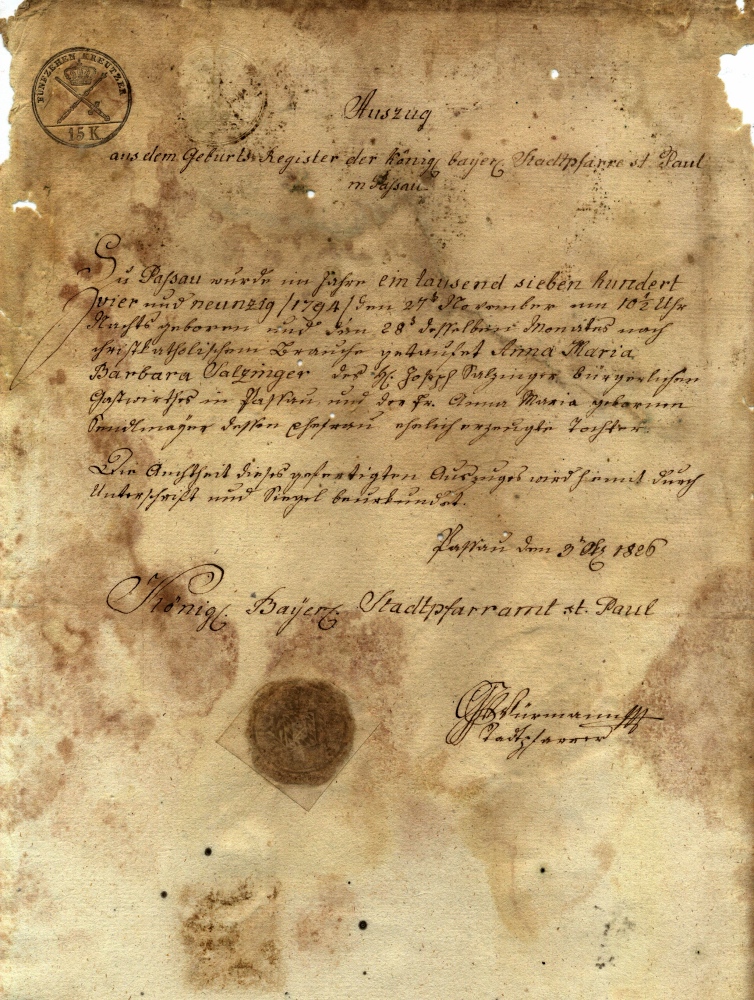 FUNFZEHEN KREUTZER
15 K
Auszug
aus dem Geburts-Register der König. bayer. Stadtpfarre st. Paul
in Paßau
Zu Paßau wurde im Jahre ein tausend sieben hundert
vier und neunzig /1794/ den 27t November um 10½ Uhr
Nachts geboren und den 28t desselben Monates nach
christkatholischem Brauche getaufet Anna Maria
Barbara Salzinger des H. Joseph Salzinger bürgerlichen
Gastwirthes in Passau und der Fr. Anna Maria gebornen
Sendlmayer dessen Ehefrau ehelich erzeugte Tochter.
Die Aechtheit dieses gefertigten Auszuges wird hiemit durch
Unterschrift und Siegel beurkundet.
Passau den 3t 1826
König. Bayer. Stadtpfarramt st. Paul
Stadtpfarrer